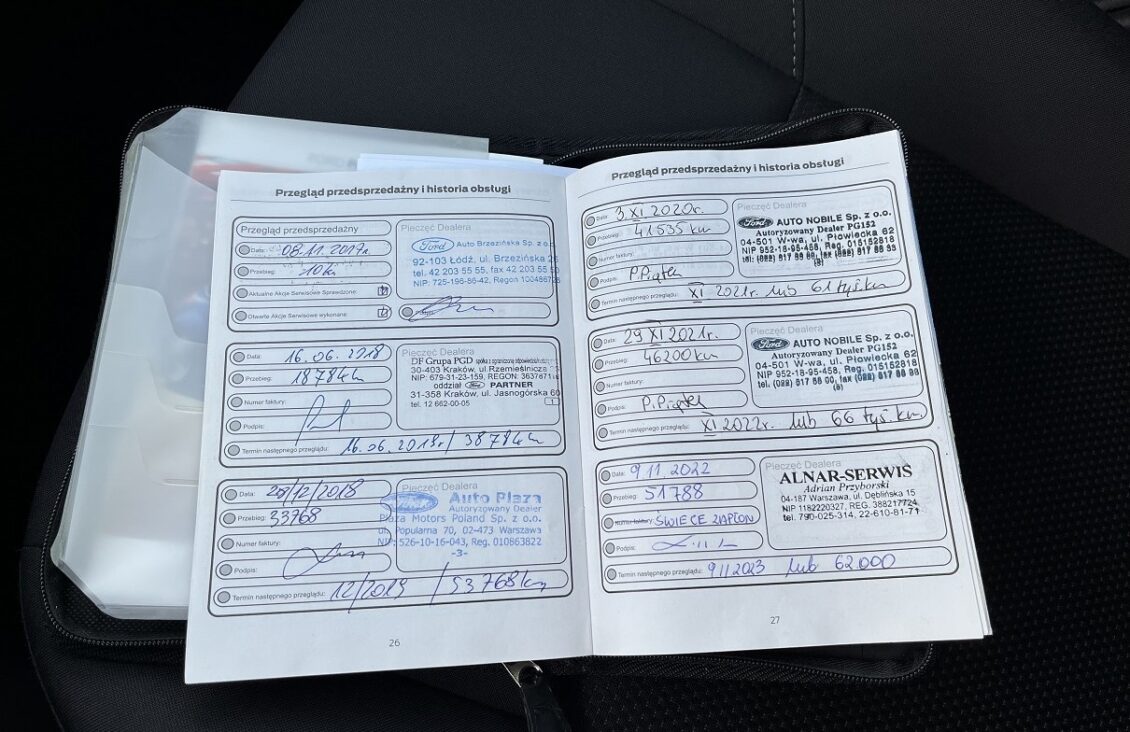 Przegląd przedsprzedażny i historia obsługi
Przegląd przedsprzedażny
Data: 08.11.2017r.
Przebieg: 10km
Aktualne Akcje Serwisowe Sprawdzone:
Otwarte Akcje Serwisowe wykonane:
Pieczęć Dealera
Ford Auto Brzezińska Sp. z o.
92-103 Łódź, ul. Brzezińska 2
tel. 42 203 55 55, fax 42 203 55 50
NIP: 725-198-86-42, Regon
Data: 16.06.2018
Przebieg: 18784km
Numer faktury:
Podpis:
Termin następnego przeglądu: 16.06.2019r / 38784km
Pieczęć Dealera
DF Grupa PGD
30-403 Kraków, ul.Rzemieślnicza
NIP: 679-31-23-159, REGON:
oddział Ford PARTNER
31-358 Kraków, ul. Jasnogórska 60
tel. 12 662-00-05
1
Data: /12/2018
Przebieg: 33768
Numer faktury:
Podpis:
Termin następnego przeglądu: 12/2019 / 53768km
Pieczęć Dealera
Ford Auto Plaza
Autoryzowany Dealer
Plaza Motors Poland Sp. z o.o.
ul. Popularna 70, 02-473 Warszawa
NIP: 526-10-16-043, Reg. 010863822
-3-
26
Przegląd przedsprzedażny i historia obsługi
Data: 3 XI 2020r.
Przebieg: 41535 km
Numer faktury:
Podpis: P.Piątek
Termin następnego przeglądu: XI 2021r. lub 61 tyś.km
Pieczęć Dealera
Ford AUTO NOBILE Sp. z o.o.
Autoryzowany Dealer PG152
04-501 W-wa, ul. Płowiecka 62
NIP 952-18-95-458, Reg. 015152818
tel. (022) 517 55 00, fax (022) 517 55 33
Data: 29 XI 2021r.
Przebieg: 46200km
Numer faktury:
Podpis: P.Piątek
Termin następnego przeglądu: XI 2022r. lub 66 tyś.km
Pieczęć Dealera
Ford AUTO NOBILE Sp. z o.o.
Autoryzowany Dealer PG152
04-501 W-wa, ul. Płowiecka 62
NIP 952-18-95-458, Reg. 015152818
tel. (022) 517 55 00, fax (022) 517 55 33
Data: 9 11 2022
Przebieg: 51788
Numer faktury: ŚWIECE ZAPŁON
Podpis:
Termin następnego przeglądu: 9 11 2023 lub 62.000
Pieczęć Dealera
ALNAR-SERWIS
Adrian Przyborski
04-187 Warszawa, ul. Dęblińska 15
NIP 1182220327, REG. 388217724
tel. 790-025-314, 22-610-81-71
27